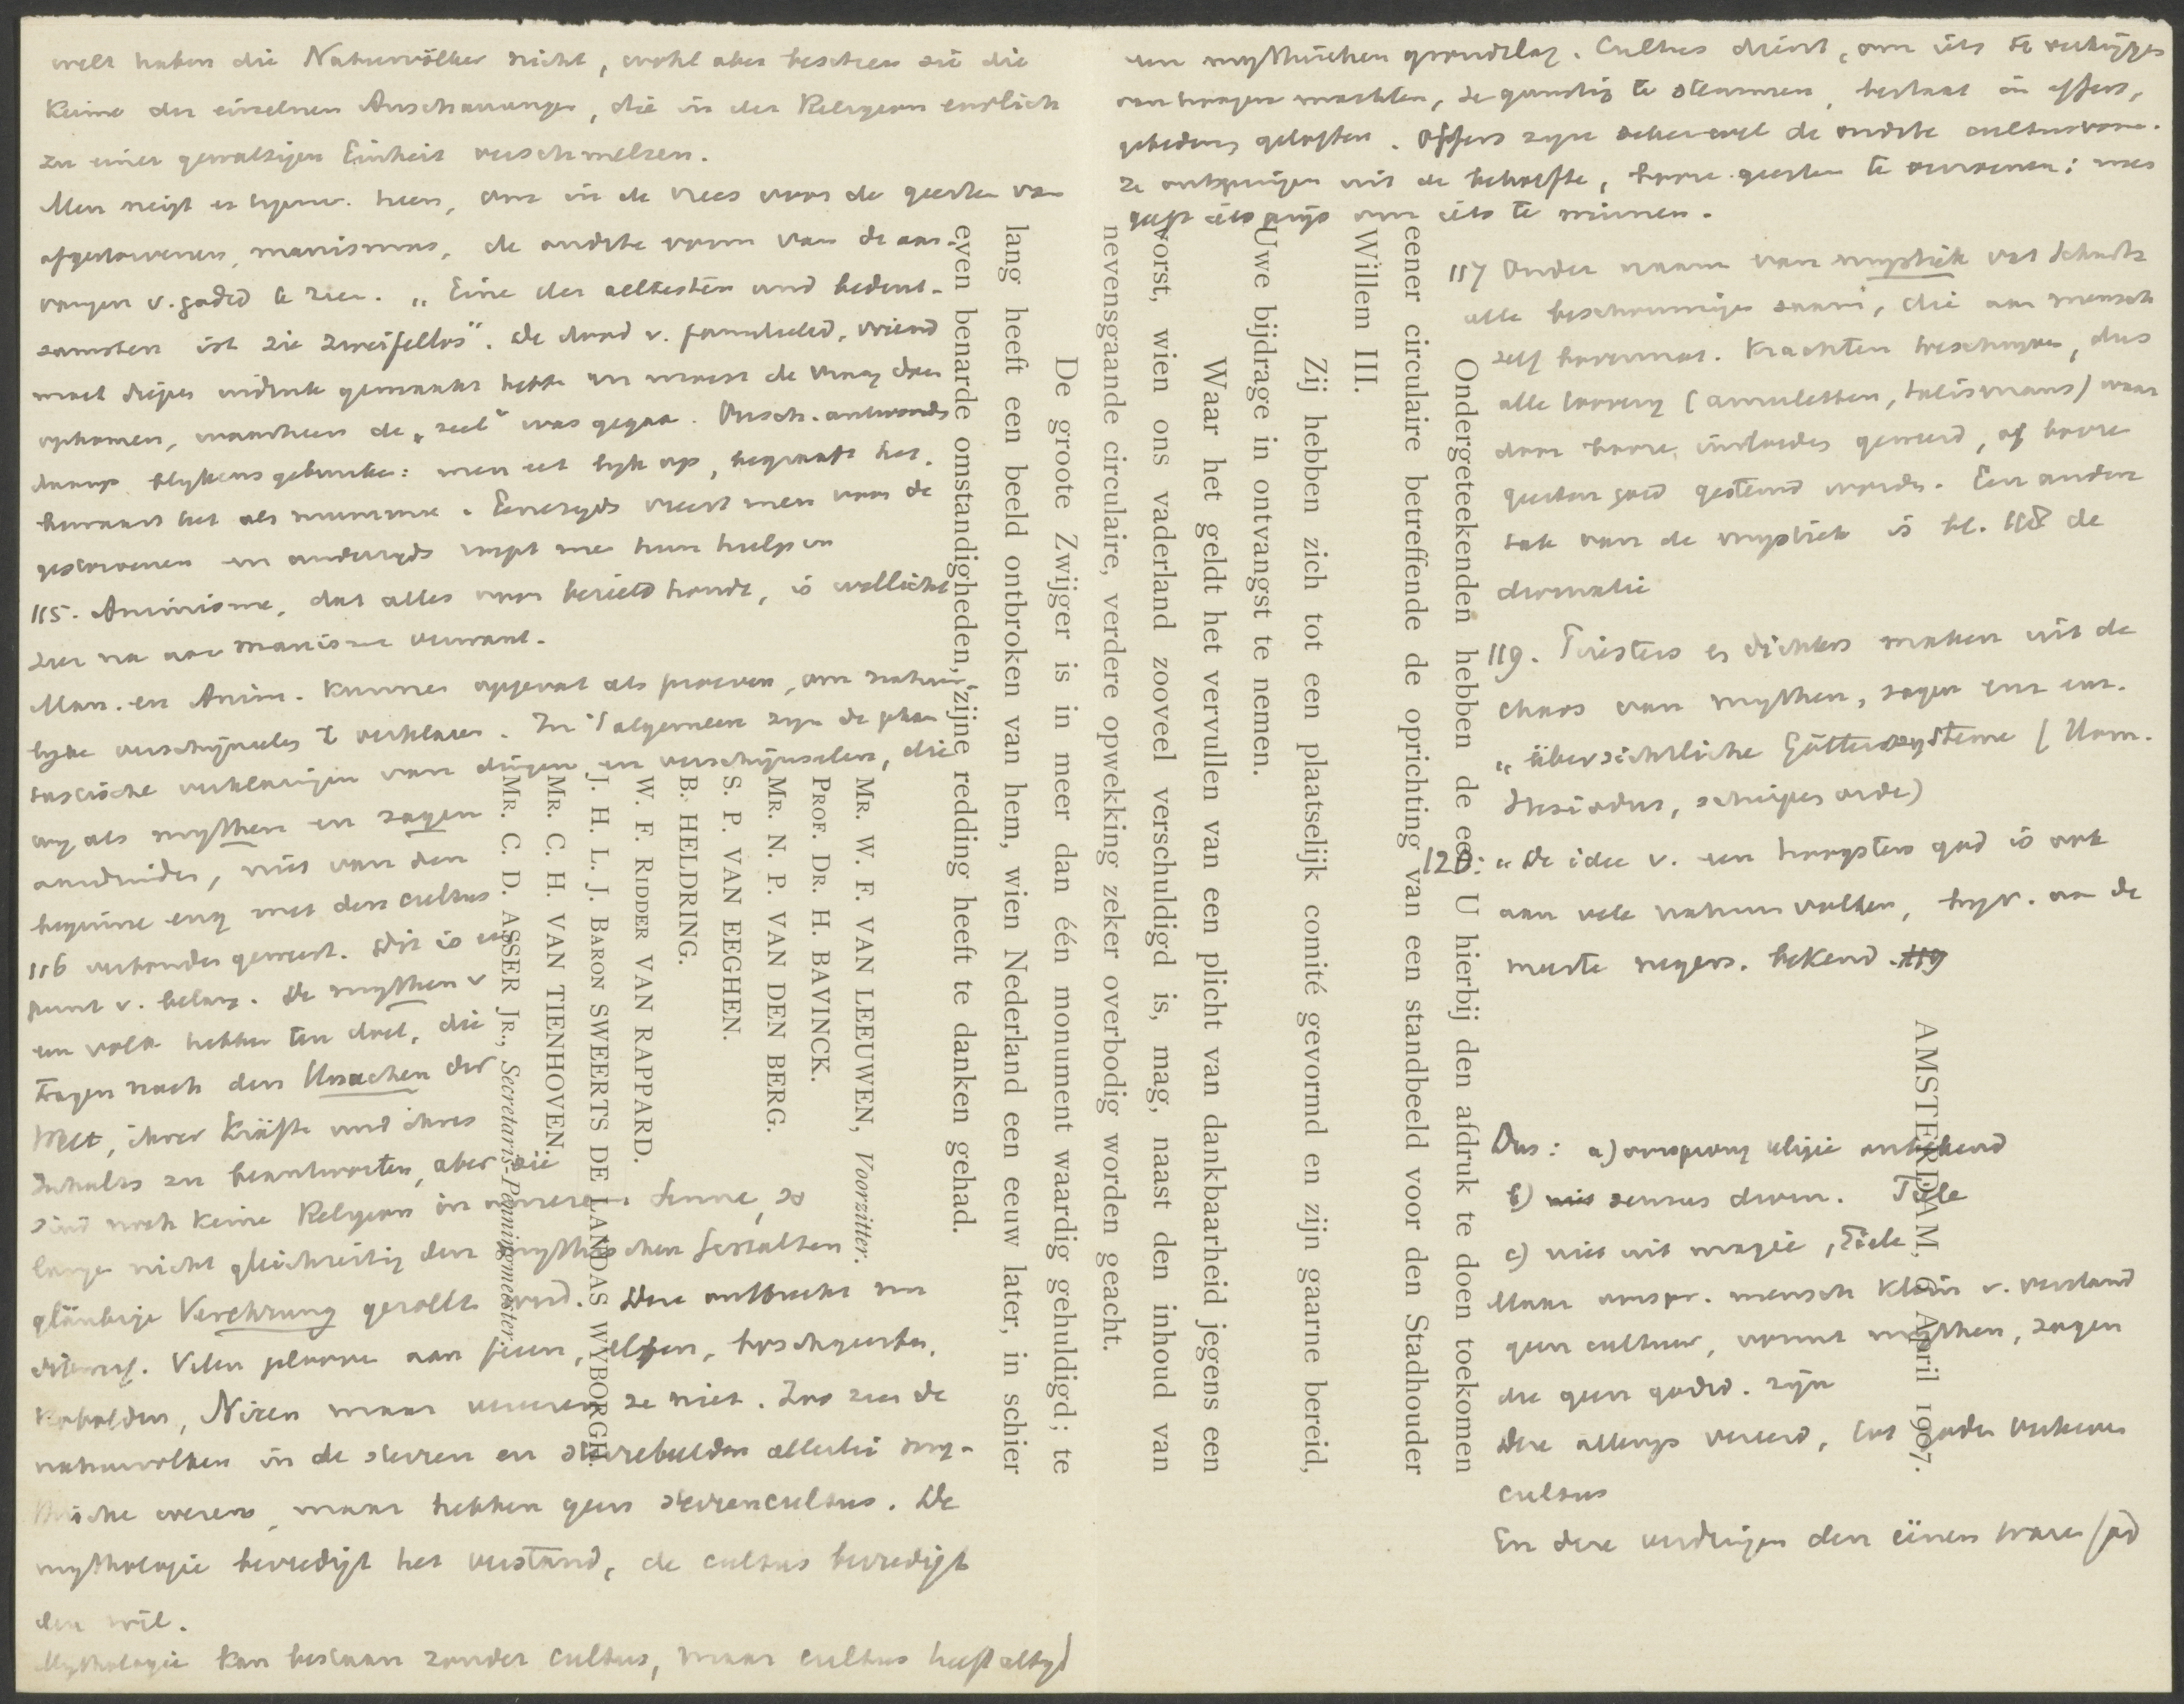 welt haben die Naturvölker nicht, wohl aber besitzen sie die
Keime der einzelnen Anschauungen, die in der Religion endlich
zu einer gewaltigen Einheit verschmelzen.
Men neigt er tegenw. heen, om in de vrees voor de geesten van
afgestorvenen, manismus, de oudste vorm van de aan-
vangen v. godsd te zien. „Eine der aeltesten und bedeut-
samsten ist sie zweifellos". De dood v. familieled, vriend
moet diepen indruk gemaakt hebben en moest de vraag doen
opkomen, waarheen de „ziel" was gegaan. antwoorden
daarop blijkens gebruiken: men eet lijk op, begraaft het,
bewaart het als mummie. Eenerzijds vreest men voor de
gestorvenen en anderzijds roept men hun hulp in
115. Animisme, dat alles voor bezield houdt, is wellicht
zeer na aan manisme verwant.
Man. en Anim. kunnen opgevat als proeven, om natuur-
lijke verschijnselen te verklaren. In 't algemeen zijn de phan
tastische verklaringen van dingen en verschijnselen, die
wij als mythen en sagen
aanduiden, niet van den
beginne eng met den cultus
116 verbonden geweest. Dit is een
punt v. belang. De mythen v
een volk hebben ten doel, die
Fragen nach den Ursachen der
Welt, ihrer Kräfte und ihres
Inhalts zu beantworten, aber sie
sind noch keine Religion in unserem Sinne, so
lange nicht gleichzeitig den mythischen Gestalten
gläubige Verehrung gezollt wird. Deze ontbreekt nu
dikwijls. Velen gelooven aan feeën, elfen, boschgeesten,
Kobolden, Nixen maar vereeren ze niet. Zoo zien de
natuurvolken in de sterren en sterrebeelden allerlei my-
thische wezens, maar hebben geen sterrencultus. De
mythologie bevredigt het verstand, de cultus bevredigt
den wil.
Mythologie kan bestaan zonder cultus, maar cultus heeft altijd
een mythischen grondslag. Cultus dient, om iets te verkrijgen
van hoogere machten, ze gunstig te stemmen, bestaat in offers,
gebeden, geloften. Offers zijn de oudste cultusvorm.
Ze ontspringen uit de behoefte, booze geesten te verzoenen; men
geeft iets prijs om iets te winnen.
117 Onder naam van mystiek vat Schurtz
alle beschouwingen saam, die aan mensch
zelf bovennat. Krachten toeschrijven, dus
alle toovery (amuletten, talismans) waar
door booze invloeden geweerd, of booze
geesten goed gestemd worden. Een andere
tak van de mystiek is bl. 118 de
divinatie
119. Priesters en dichters maken uit de
chaos van mythen, sagen enz een
„übersichtliche Göttersysteme (Hom.
Hesiodus, scheppen orde)
120: „De idee v. een hoogsten god is ook
aan vele natuurvolken, bijv. aan de
meeste negers. bekend. 119
Dus: a) oorsprong religie onbekend
b) sensus divin. Tiele
c) niet uit magie, Tiele
Maar oorspr. mensch klein v. verstand
geen cultuur, vormt mythen, sagen
die geen godsd. zijn
Deze allengs vereerd, tot goden verheven
cultus
En deze verdringen den eenen waren God
AMSTERDAM, 6 April 1907.
Ondergeteekenden hebben de eer U hierbij den afdruk te doen toekomen
eener circulaire betreffende de oprichting van een standbeeld voor den Stadhouder
Willem III.
Zij hebben zich tot een plaatselijk comité gevormd en zijn gaarne bereid,
Uwe bijdrage in ontvangst te nemen.
Waar het geldt het vervullen van een plicht van dankbaarheid jegens een
vorst, wien ons vaderland zooveel verschuldigd is, mag, naast den inhoud van
nevensgaande circulaire, verdere opwekking zeker overbodig worden geacht.
De groote Zwijger is in meer dan één monument waardig gehuldigd; te
lang heeft een beeld ontbroken van hem, wien Nederland een eeuw later, in schier
even benarde omstandigheden, zijne redding heeft te danken gehad.
MR. W. F. VAN LEEUWEN, Voorzitter.
PROF. DR. H. BAVINCK.
MR. N. P. VAN DEN BERG.
S. P. VAN EEGHEN.
B. HELDRING.
W. F. RIDDER VAN RAPPARD.
J. H. L. J. BARON SWEERTS DE LANDAS WYBORGH.
MR. C. H. VAN TIENHOVEN.
MR. C. D. ASSER JR., Secretaris-Penningmeester.